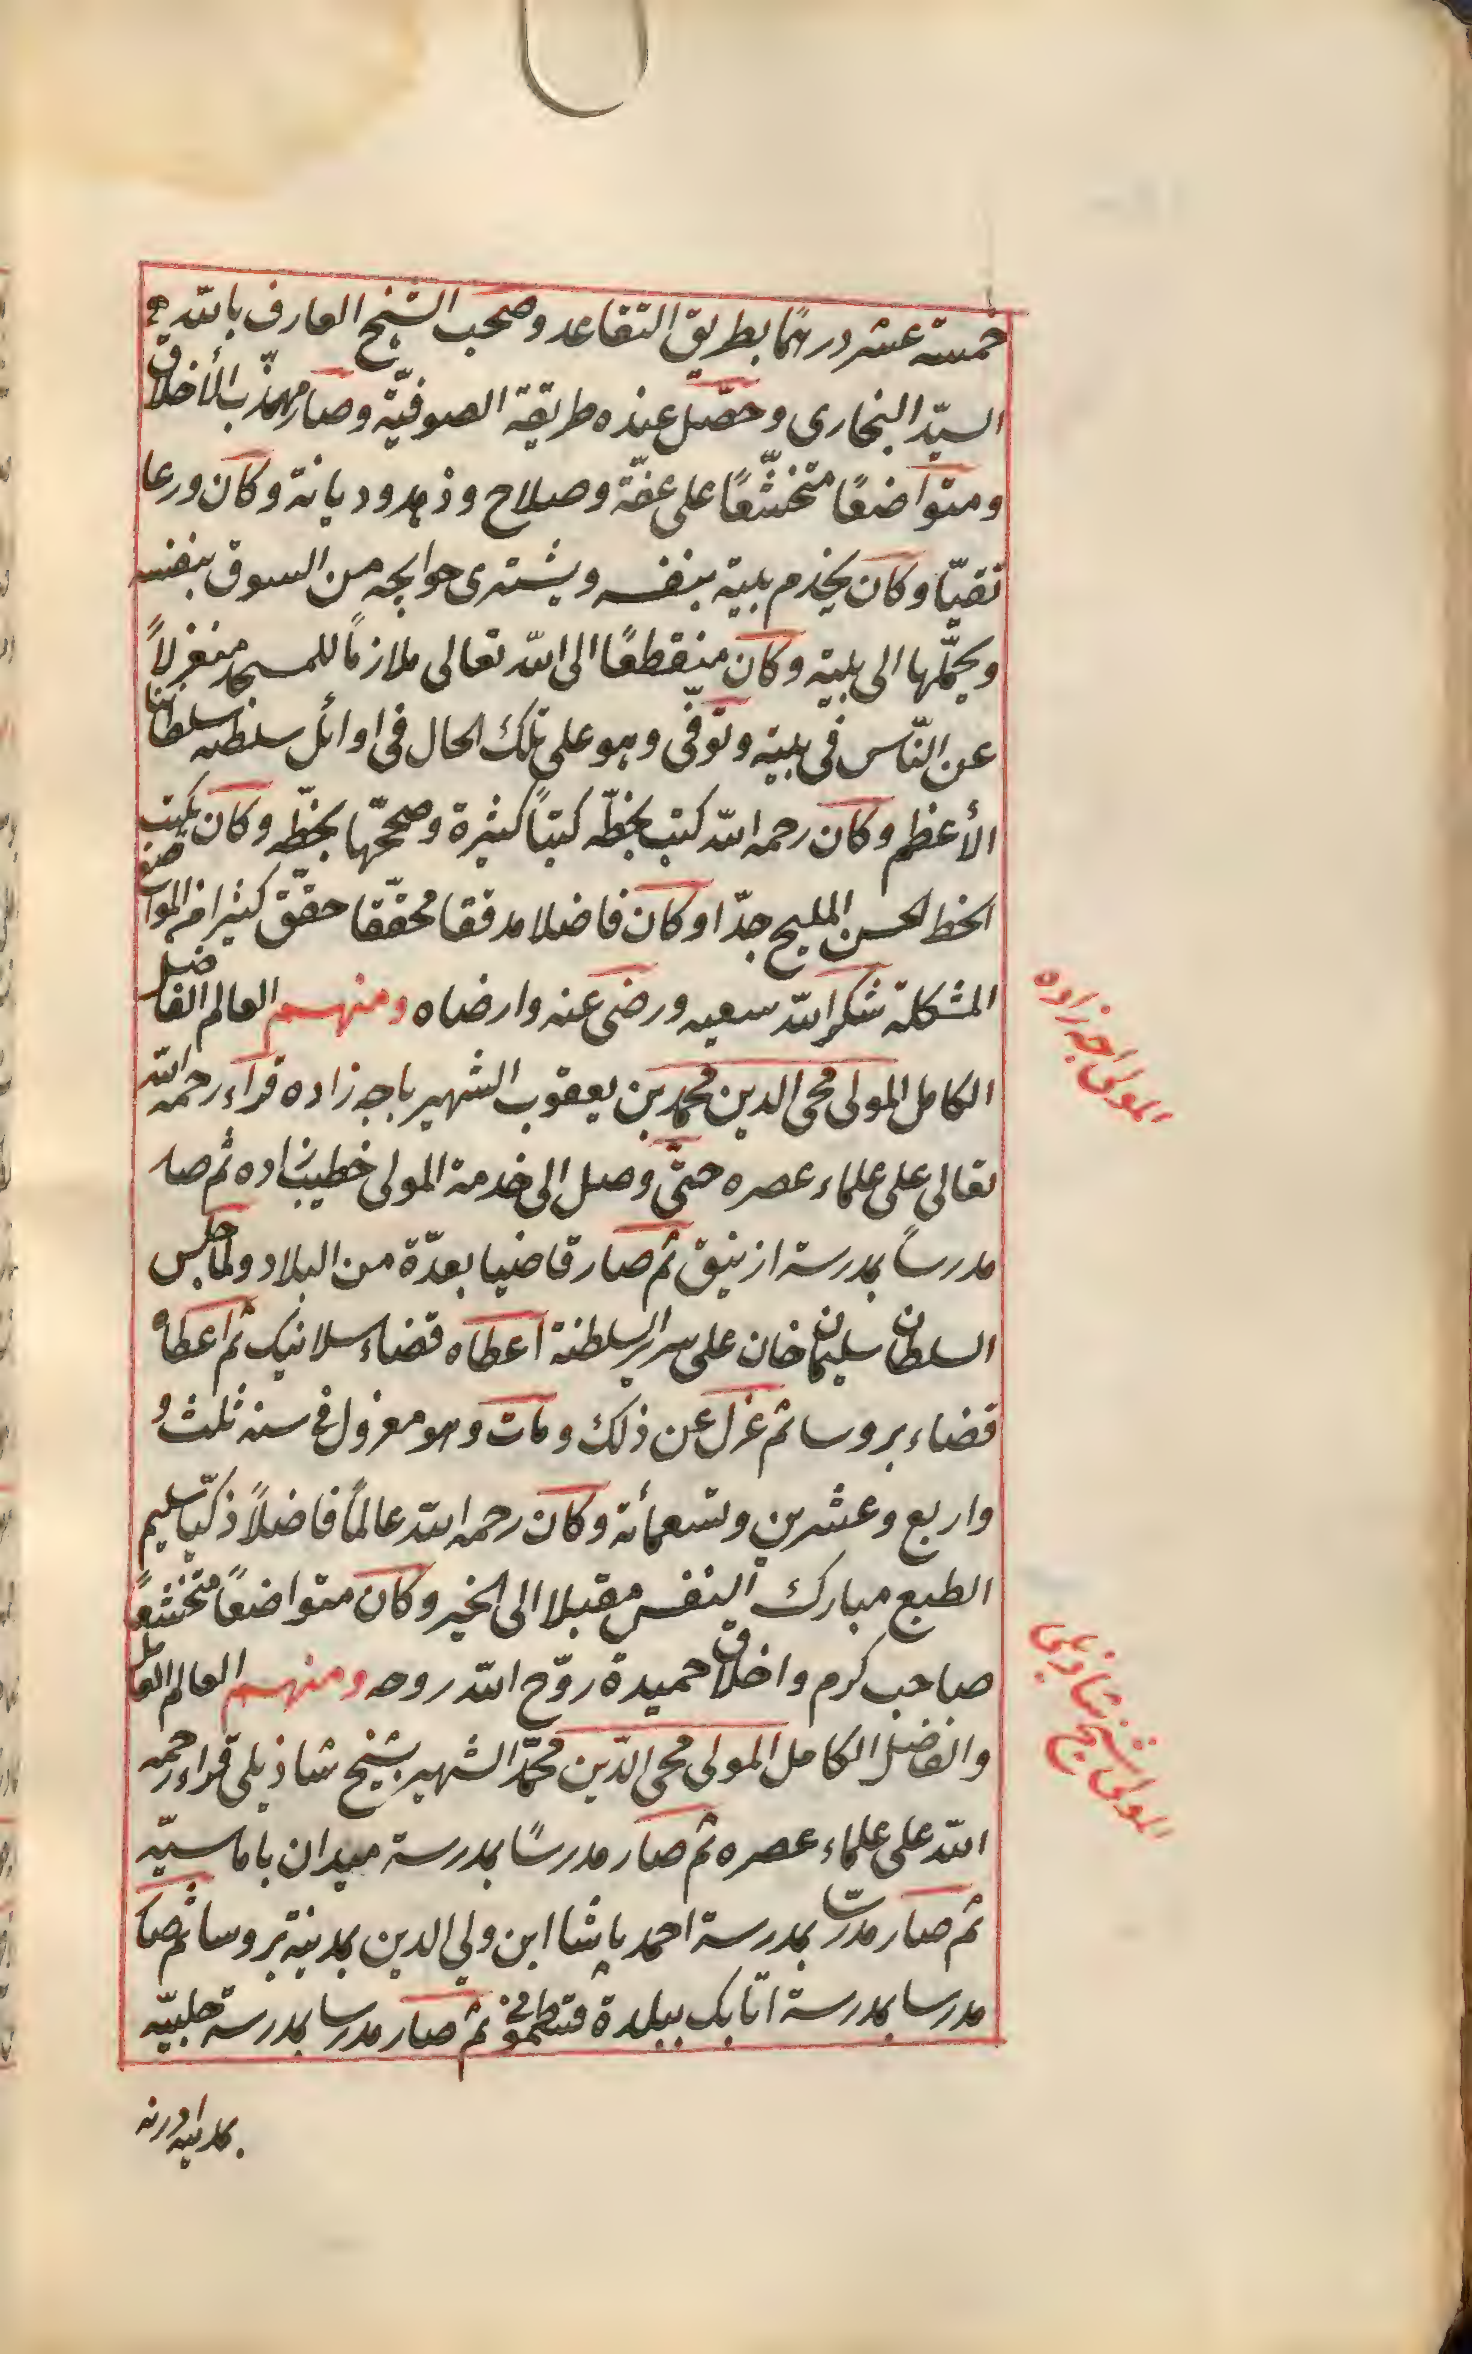 خمسة عشر درهمًا بطريق التقاعد وصحب الشيخ العارف بالله
السيّد البخارى وحصّل عنده طريقة الصوفيّة وصار مهذّب الأخلاق
ومتواضعًا متخشّعًا على عفّة وصلاح وزهد وديانة وكان ورعا
تقيّا وكان يخدم بيته بنفسه ويشترى حوايجه من السوق بنفسه
ويحمّلها الى بيته وكان منقطعًا الى الله تعالى ملازمًا للمسجد منعزلاً
عن النّاس فى بيته وتوفّى وهو على تلك الحال فى اوائل سلطنه سلطاننا
الأعظم وكان رحمه الله كتب بخطّه كتبًا كثيرة وصحّحها بخطّه وكان يكتب
الخط الحسن المليح جدّا وكان فاضلا مدققا محقّقا حقّق كثيرا من المواضع
المشكلة شكر الله سعيه ورضى عنه وارضاه ومنهم العالم الفاضل
الكامل المولى محى الدين محمد بن يعقوب الشهير باجه زاده قراء رحمه الله
تعالى على علماء عصره حتّى وصل الى خدمة المولى خطيب زاده ثم صار
مدرساً بمدرسة ازنيق ثم صار قاضيا بعدّة من البلاد ولما جلس
السلطان سليمان خان على سرير السلطنة اعطاه قضاء سلانيك ثم اعطاه
قضاء بروسا ثم عزل عن ذلك ومات وهو معزول فى سنه ثلث و
واربع وعشرين وتسعمأئة وكان رحمه الله عالمًا فاضلاً ذكيّا سليم
الطبع مبارك النفس مقبلا الى الخير وكان متواضعًا متخشّعًا
صاحب كرم واخلاق حميدة روّح الله روحه ومنهم العالم العامل
والفاضل الكامل المولى محى الدّين محمّد الشهير بشيخ شاذيلى قراء رحمه
الله على علماء عصره ثم صار مدرسًا بمدرسة ميدان باماسيّه
ثم صار مدرسا بمدرسة احمد پاشا ابن ولي الدين بمدينة بروسا ثم صار
مدرسا بمدرسة اتابك ببلدة قسطمونى ثم صار مدرسا بمدرسة حلبيّه
بمدينه ادرنه
المولى اجه زاده
المولى شيخ شاذيلى